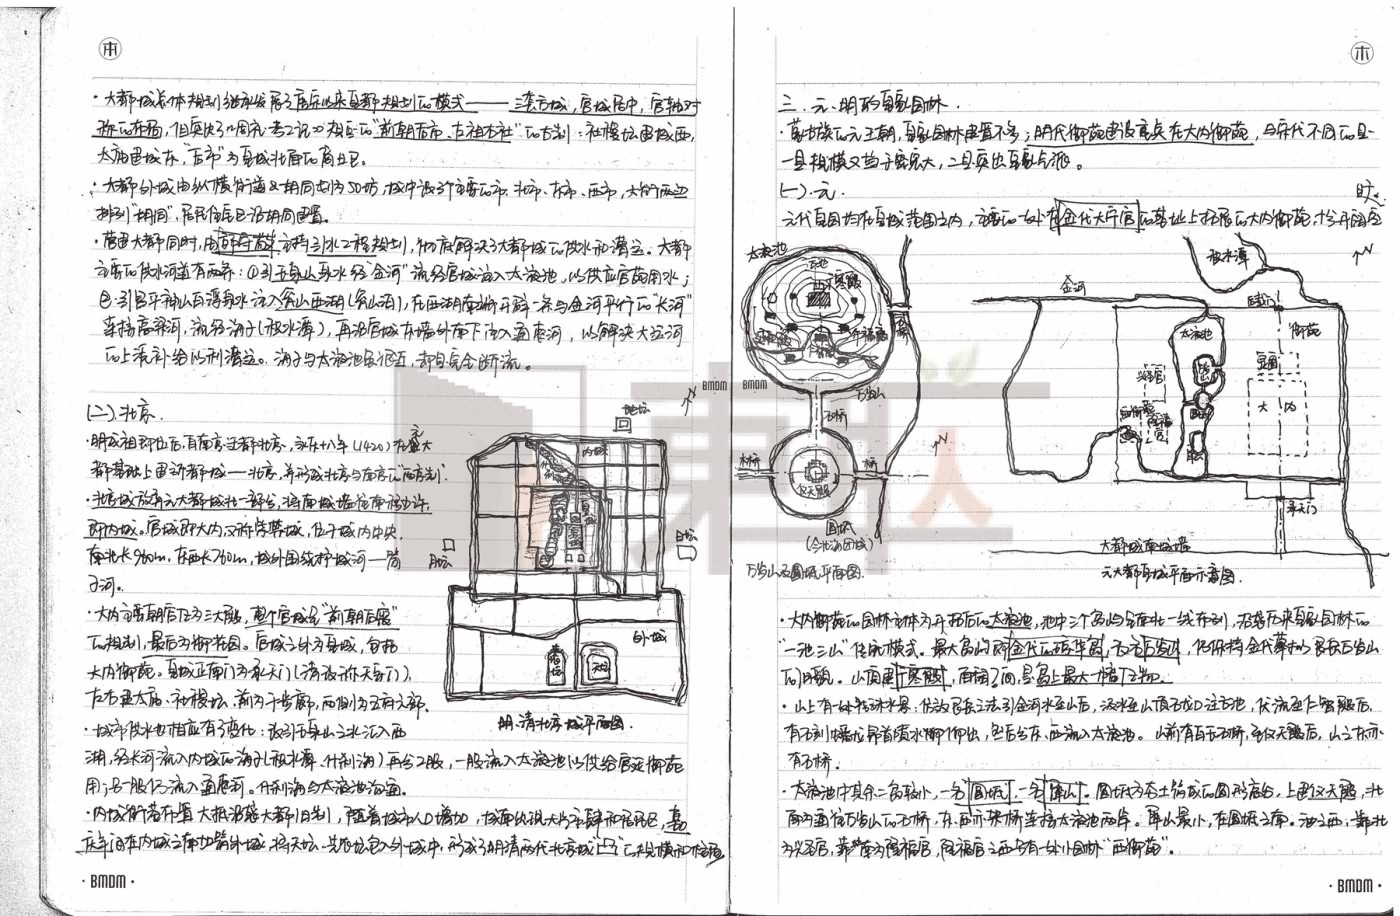 ·大都城总体规划继承发展了唐宋以来皇都规划的模式——三套方城,宫城居中,宫轴对
称的布局,但突出了《周礼·考工记》规定的"前朝后市,左祖右社"的古制:社稷坛建城西,
太庙建城东,"后市"为皇城北面的商业区。
·大都外城由纵横街道及胡同划为50坊,城中设3个主要的市:北市、东市、西市,大街两边
排列"胡同",居民住宅区沿胡同建置。
·营建大都同时,由郭守敬主持引水工程规划,彻底解决了大都城的供水和漕运。大都
主要的供水河道有两条:①引玉泉山泉水经"金河"流经宫城流入太液池,以供应宫苑用水;
②引昌平神山白浮泉水流入瓮山西湖(瓮山湖),在西湖南端开辟一条与金河平行的"长河"
东接高梁河,流经海子(积水潭),再沿宫城东墙外南下流入通惠河,以解决大运河
的上源补给以利漕运。海子与太液池虽很近,却是完全断流。
(二)、北京
·明成祖即位后,自南京迁都北京,永乐十八年(1420)在元大
都基础上建新都城——北京,并形成北京与南京的"两京制".
·北京城放弃元大都城北一部分,将南城墙往南移少许,
即内城。宫城即大内,又称紫禁城,位于城内中央.
南北长960m,东西长760m,城外围绕护城河—筒
子河.
·大内主要朝宫仍为三大殿,整个宫城呈"前朝后寝"
的规制,最后为御花园。宫城之外为皇城,包括
大内御苑。皇城正南门为承天门(清改称天安门).
左右建太庙、社稷坛,前为千步廊,两侧为五府六部.
·城市供水也相应有了变化:改引玉泉山之水汇入西
湖,经长河流入内城的海子(积水潭、什刹海)再分2股,一股流入太液池以供给宫廷御苑
用;另一股仍流入通惠河。什刹海与太液池沟通。
·内城街巷布置大概沿袭大都旧制,随着城市人口增加,城南出现大片市肆和居民区,嘉
庆年间在内城之南加筑外城,将天坛、先农坛包入外城中,形成了明清两代北京城"凸"的规模和格局。
地坛
内城
日坛
月坛
外城
天坛
明、清北京城平面图.
三、元、明的皇家园林.
·蒙古族的元王朝,皇家园林建置不多;明代御苑建设重点在大内御苑,与宋代不同的是:
一是规模又趋于宏大,二是突出皇家气派。
(一)元.
元代皇园均在皇城范围之内,主要的一处在金代大宁宫的基址上拓展的大内御苑,十分开阔空
旷.
太液池
方池
广寒殿
万岁山
石桥
木桥
木桥
仪天殿
圆城
(今北海团城)
万岁山及圆城平面图.
积水潭
金河
太液池
御苑
大内
兴圣宫
隆福宫
西御苑
承天门
大都城南城墙
元大都皇城平面示意图.
·大内御苑的园林主体为开拓后的太液池,池中三个岛屿呈南北一线布列,沿袭历来皇家园林的
"一池三山"传统模式。最大岛屿即金代的琼华岛,改名万岁山,仍保持金代摹拟的艮岳万岁山
的旧貌。山顶建广寒殿,面阔7间,是岛上最大一幢建筑物.
·山上有一处特殊水景:仿效艮岳之法引金河水至山后,汲水至山顶石龙口注方池,伏流至仁智殿后,
有石刻蟠龙昂首喷水仰出,然后分东、西流入太液池。山前有白玉石桥,直仪天殿后,山之东亦
有石桥.
·太液池中其余二岛较小,一名圆坻,一名屏山。圆坻为夯土筑成的圆形高台,上建仪天殿,北
面为通往万岁山的石桥,东、西亦架桥连接太液池两岸。屏山最小,在圆坻之南。池之西,靠北
为兴圣宫,靠南为隆福宫,隆福宫之西另有一处小园林"西御苑".
·BMDM·
·BMDM·
BMDM
BMDM